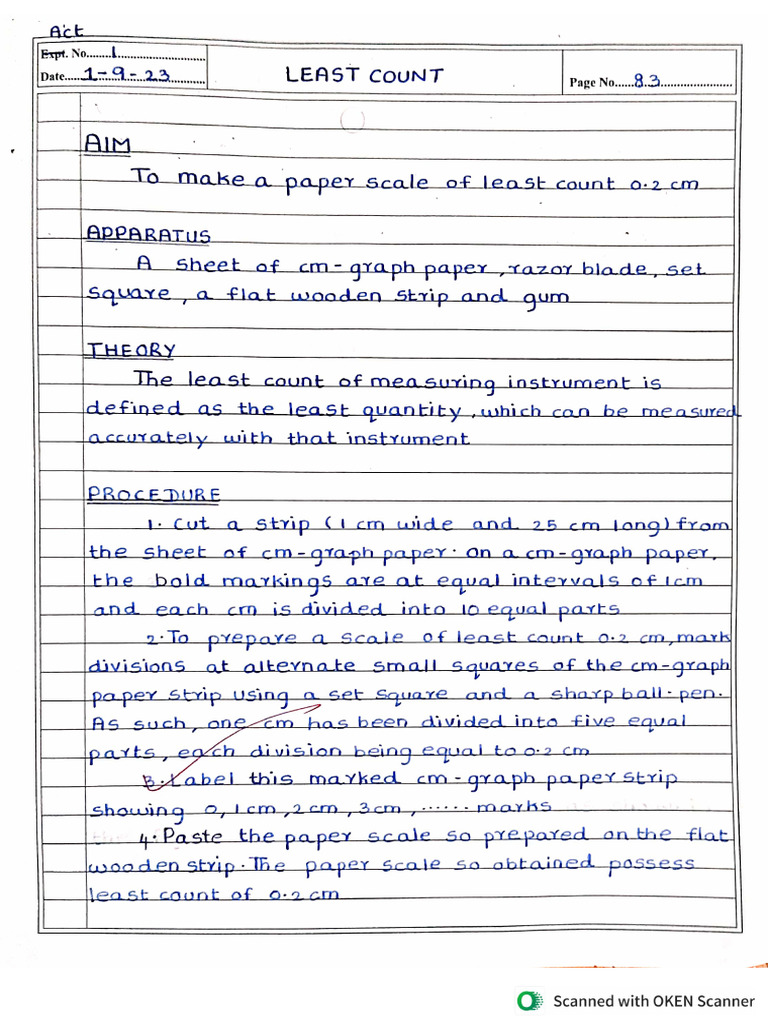 Act
Expt. No. 1
Date 1-9-23
LEAST COUNT
Page No. 83
AIM
To make a paper scale of least count 0.2 cm
APPARATUS
A sheet of cm-graph paper, razor blade, set
square, a flat wooden strip and gum
THEORY
The least count of measuring instrument is
defined as the least quantity, which can be measured
accurately with that instrument
PROCEDURE
1. Cut a strip (1 cm wide and 25 cm long) from
the sheet of cm-graph paper. On a cm-graph paper.
the bold markings are at equal intervals of 1cm
and each cm is divided into 10 equal parts
2. To prepare a scale of least count 0.2 cm, mark
divisions at alternate small squares of the cm-graph
paper strip using a set square and a sharp ball-pen.
As such, one cm has been divided into five equal
parts, each division being equal to 0.2 cm
3. Label this marked cm-graph paper strip
showing 0, 1cm, 2cm, 3cm, ...... marks
4. Paste the paper scale so prepared on the flat
wooden strip. The paper scale so obtained possess
least count of 0.2 cm
Scanned with OKEN Scanner